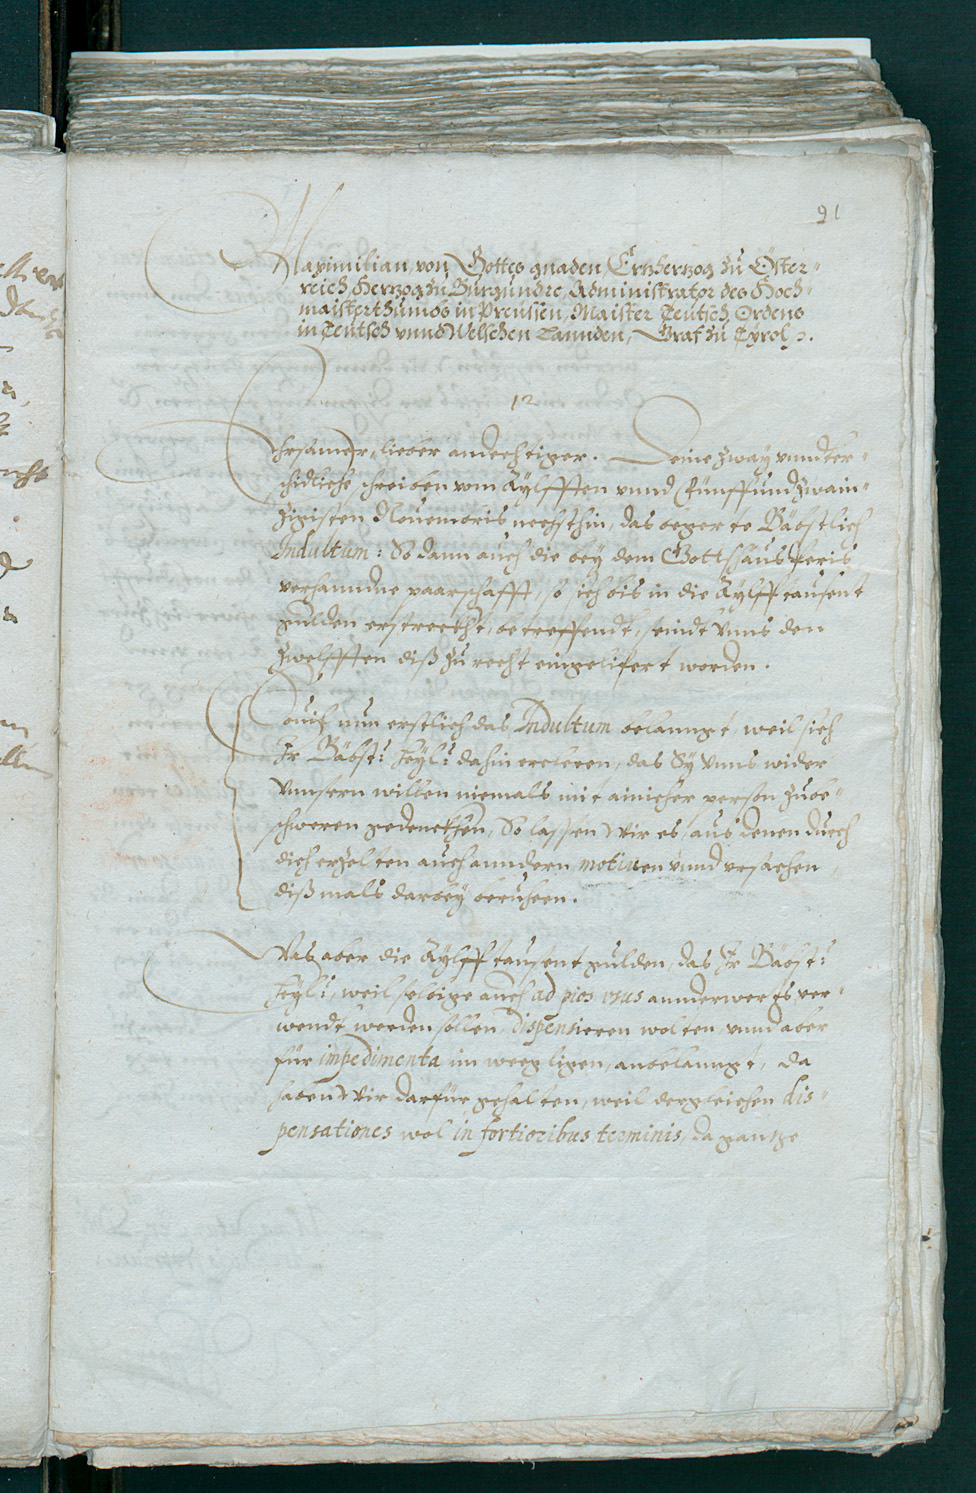 91
Maximilian von Gottes gnaden Ertzhertzog zu Öster-
reich Hertzog zu Burgundie, Administrator des Hoch-
maisterthumbs in Preussen, Maister Teutsch Ordens
in Teutsch vnnd Welschen Lannden, Graf zu Tyrol
12
Ehrsamer lieber andechtiger. Deine zway vnnder-
schidliche schreiben vom Aylfften vnnd Fünffundzwain-
zigisten Nouembris nechsthin, das begerte Bäbstlich
Indultum: So dann auch die bey dem Gottshaus
verhanndne paarschafft, so sich bis in die Aylfftausent
gulden erstreckht, betreffendt, seindt Vnns den
zwelfften diß zu recht eingelifert worden.
Souil nun erstlich das Indultum belanngt, weil sich
Ir Bäbst: Heyl: dahin ercleren, das Sy Vnns wider
Vnnsern willen niemals mit ainicher person zube-
schweren gedenckhen, So lassen Wir es, aus denen durch
dich erzelten auch anndern motiuen vnnd vrsachen
dißmals darbey beruheen.
Was aber die Aylfftausent gulden, das Ir Bäbst:
Heyl:, weil selbige auch ad pios vsus annderwerts ver-
wendt werden sollen, dispensieren wolten vnnd aber
für impedimenta im weeg ligen, anbelanngt, da
haben Wir darfür gehalten, weil dergleichen dis-
pensationes wol in fortioribus terminis, da gantze